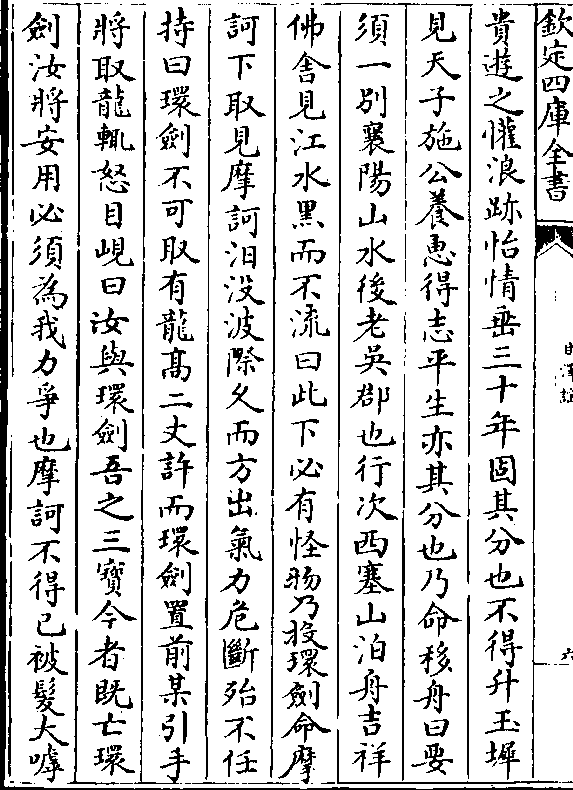 欽定四庫全書
貴遊之懽浪跡怡情垂三十年固其分也不得升玉墀
見天子施公養惠得志平生亦其分也乃命移舟曰要
須一別襄陽山水後老吳郡也行次西塞山泊舟吉祥
佛舍見江水黑而不流曰此下必有怪物乃投環劍命摩
訶下取見摩訶汨没波際久而方出氣力危斷殆不任
持曰環劍不可取有龍髙二丈許而環劍置前某引手
將取龍輒怒目峴曰汝與環劍吾之三寳今者既亡環
劍汝將安用必須為我力爭也摩訶不得已被髮大呼
甘澤謡
六